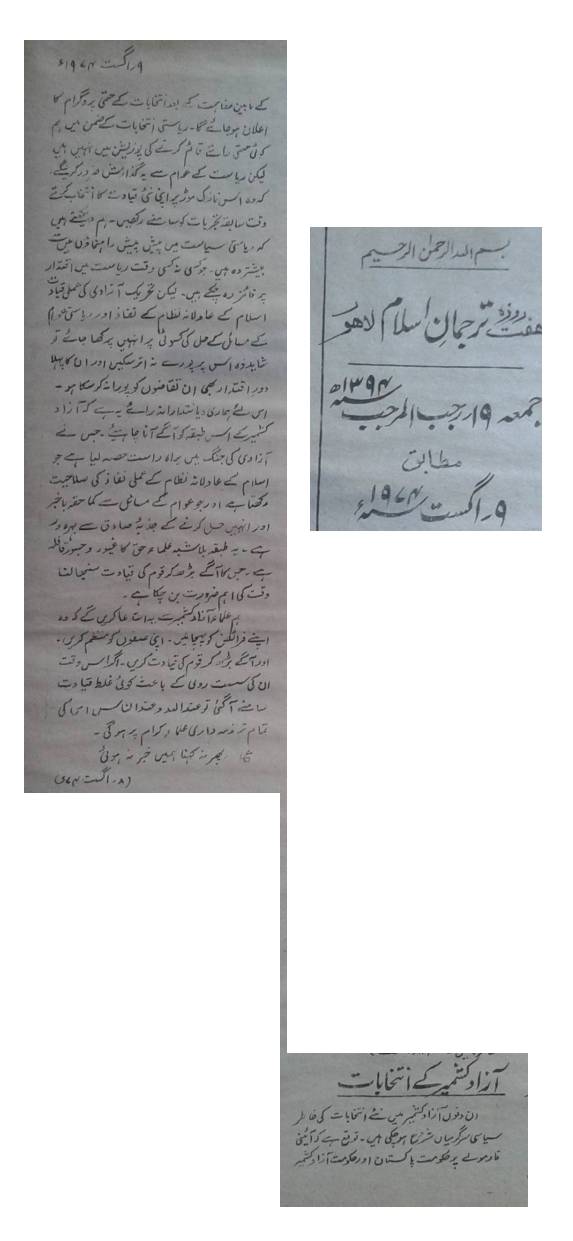 بسم اللہ الرحمٰن الرحیم
ہفت روزہ ترجمانِ اسلام لاہور
جمعہ ۱۹؍ رجب المرجب ۱۳۹۴ھ
مطابق
۹؍ اگست ۱۹۷۴ء
آزاد کشمیر کے انتخابات
ان دنوں آزاد کشمیر میں نئے انتخابات کی خاطر
سیاسی سرگرمیاں شروع ہوچکی ہیں۔ توقع ہے کہ آئینی
فارمولے پر حکومت پاکستان اور حکومت آزاد کشمیر
۹؍ اگست ۱۹۷۴ء
کے مابین مفاہمت کے بعد انتخابات کے حتمی پروگرام کا
اعلان ہوجائے گا۔ ریاستی انتخابات کے ضمن میں ہم
کوئی حتمی رائے قائم کرنے کی پوزیشن میں نہیں ہیں
لیکن ریاست کے عوام سے یہ گذارش ضرور کرینگے،
کہ وہ اس نازک موڑ پر اپنی نئی قیادت کا انتخاب کرتے
وقت سابقہ تجربات کو سامنے رکھیں۔ ہم دیکھتے ہیں
کہ ریاستی سیاست میں پیش پیش راہنماؤں میں سے
بیشتر وہ ہیں۔ جو کسی نہ کسی وقت ریاست میں اقتدار
پر فائز رہ چکے ہیں۔ لیکن تحریک آزادی کی عملی قیادت
اسلام کے عادلانہ نظام کے نفاذ اور ریاستی عوام
کے مسائل کے حل کی کسوٹی پر انہیں پرکھا جائے تو
شاید وہ اس پر پورے نہ اتر سکیں اور ان کا پہلا
دور اقتدار بھی ان تقاضوں کو پورا نہ کرسکا ہو۔
اس لئے ہماری دیانتدارانہ رائے یہ ہے کہ آزاد
کشمیر کے اس طبقہ کو آگے آنا چاہیئے۔ جس نے
آزادی کی جنگ میں براہ راست حصہ لیا ہے جو
اسلام کے عادلانہ نظام کے عملی نفاذ کی صلاحیت
رکھتا ہے اور جو عوام کے مسائل سے کما حقہ باخبر
اور انہیں حل کرنے کے جذبۂ صادق سے بہرہ ور
ہے۔ یہ طبقہ بلاشبہ علماء حق کا غیور و جسور قافلہ
ہے۔ جس کا آگے بڑھ کر قوم کی قیادت سنبھالنا
وقت کی اہم ضرورت بن چکا ہے۔
ہم علماء آزاد کشمیر سے استدعا کریں گے کہ وہ
اپنے فرائض کو پہچانیں۔ اپنی صفوں کو منظم کریں۔
اور آگے بڑھ کر قوم کی قیادت کریں۔ اگر اس وقت
ان کی سست روی کے باعث کوئی غلط قیادت
سامنے آگئی تو عند اللہ وعند الناس اس کی
تمام تر ذمہ داری علماء کرام پر ہوگی۔
ع پھر نہ کہنا ہمیں خبر نہ ہوئی
(۸؍ اگست ۷۴ء)